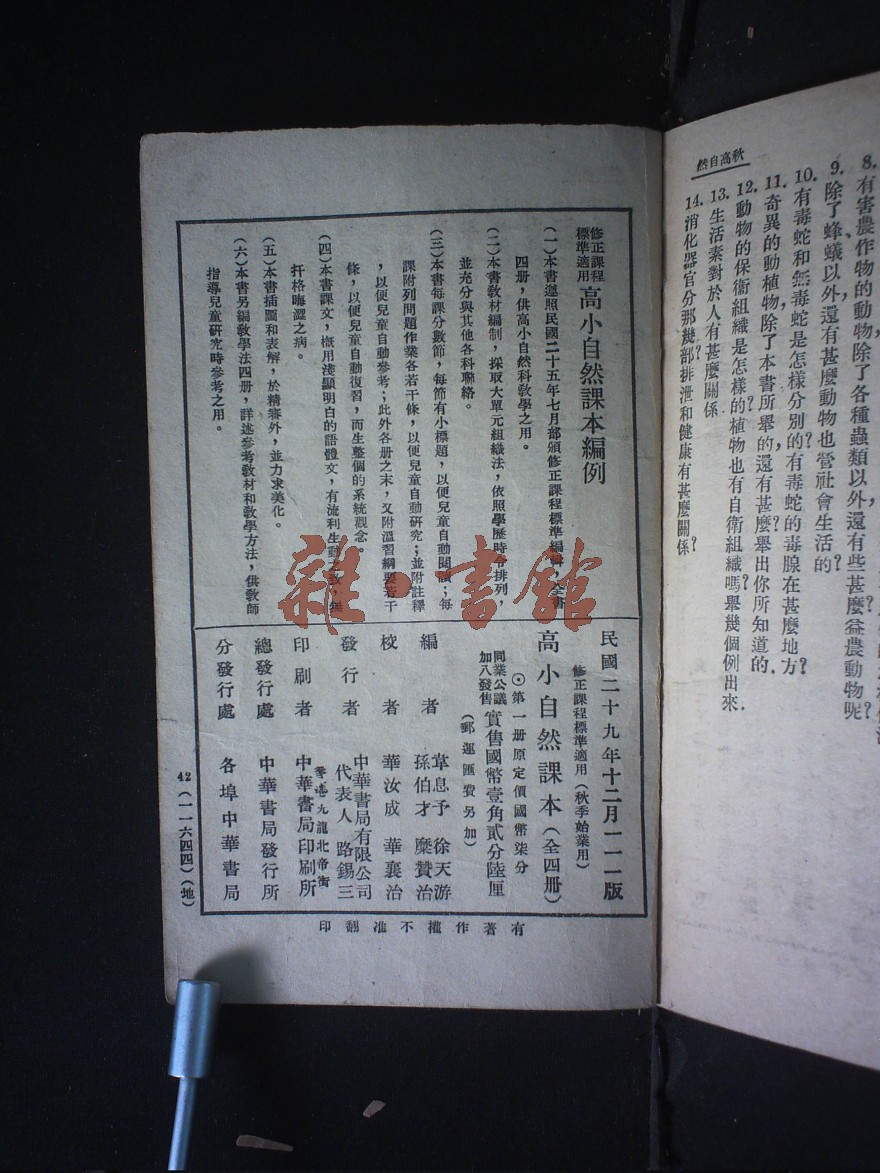 8. 有害農作物的動物，除了各種蟲類以外還有些甚麼益農動物呢？
9. 除了蜂蟻以外，還有甚麼動物也營社會生活的？
10. 有毒蛇和無毒蛇是怎樣分別的？有毒蛇的毒腺在甚麼地方？
11. 奇異的動植物，除了本書所舉的，還有甚麼？舉出你所知道的.
12. 動物的保衛組織是怎樣的？植物也有自衛組織嗎？舉幾個例出來.
13. 生活素對於人有甚麼關係？
14. 消化器官分那幾部？排泄和健康有甚麼關係？
秋高自然
修正課程標準適用 高小自然課本編例
（一）本書遵照民國二十五年七月部頒修正課程標準編輯，全書
四册，供高小自然科教學之用。
（二）本書教材編制，採取大單元組織法，依照學歷時令排列，
並充分與其他各科聯絡。
（三）本書每課分數節，每節有小標題，以便兒童自動閱讀；每
課附列問題作業各若干條，以便兒童自動研究；並附註釋
，以便兒童自動參考；此外各册之末，又附溫習綱要若干
條，以便兒童自動復習，而生整個的系統觀念。
（四）本書課文，槪用淺顯明白的語體文，有流利生動之致，無
扞格晦澀之病。
（五）本書插圖和表解，於精審外，並力求美化。
（六）本書另編教學法四册，詳述參考教材和教學方法，供教師
指導兒童研究時參考之用。
民國二十九年十二月一一一版
修正課程標準適用（秋季始業用）
高小自然課本（全四册）
⊙第一册原定價國幣柒分
同業公議加八發售 實售國幣壹角貳分陸厘
（郵運匯費另加）
編者 韋息予 徐天游
孫伯才 糜贊治
校者 華汝成 華襄治
發行者 中華書局有限公司
代表人 路錫三
印刷者 香港九龍北帝街
中華書局印刷所
總發行處 中華書局發行所
分發行處 各埠中華書局
42（一一六四四）（地）
有著作權不准翻印
雜·書館